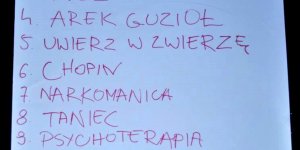 4. AREK GUZIOŁ
5. UWIERZ W ZWIERZĘ
6. CHOPIN
7. NARKOMANICA
8 TANIEC
9. PSYCHOTERAPIA